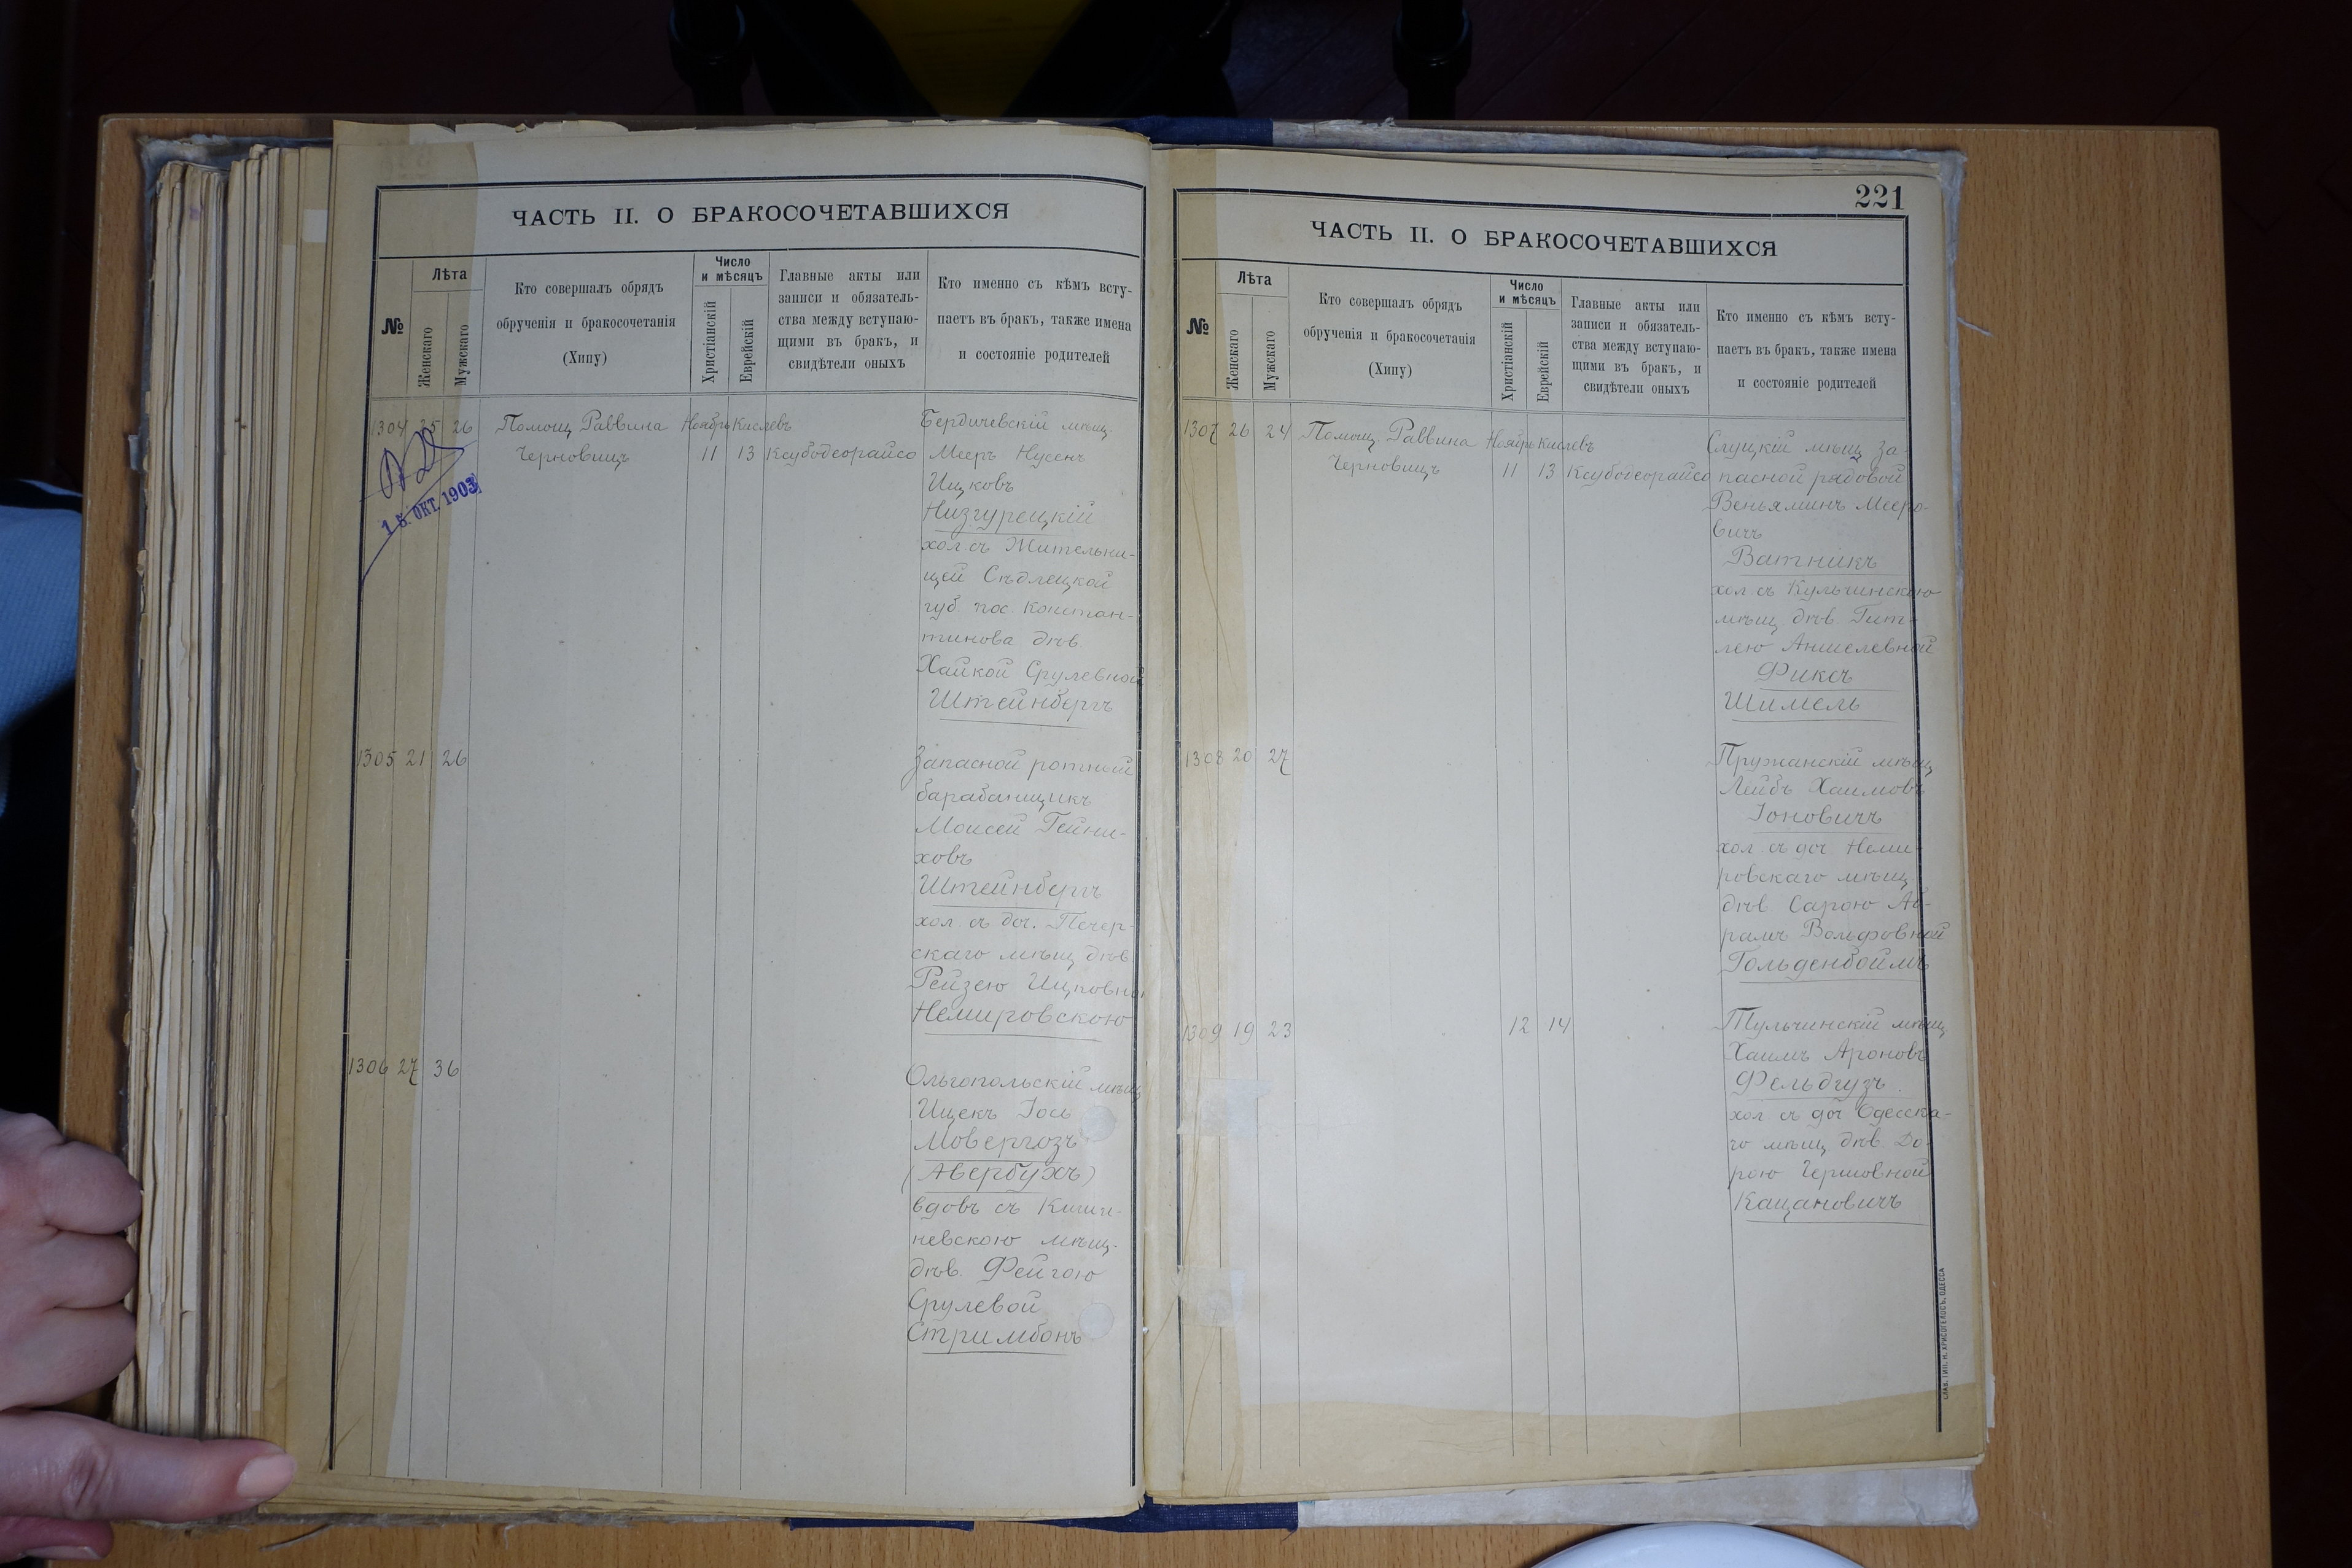 ЧАСТЬ II. О БРАКОСОЧЕТАВШИХСЯ
№
Лѣта
Женскаго
Мужскаго
Кто совершалъ обрядъ
обрученія и бракосочетанія
(Хипу)
Число
и мѣсяцъ
Христіанскій
Еврейскій
Главные акты или
записи и обязатель-
ства между вступаю-
щими въ бракъ, и
свидѣтели оныхъ
Кто именно съ кѣмъ всту-
паетъ въ бракъ, также имена
и состояніе родителей
1304 25 26 Помощ Раввина Ноябрь Кислевъ Бердичевскій мѣщ.
Черновицъ 11 13 Ксубодеорайсо Мееръ Нусенъ
Ицковъ
Низгурецкій
хол. съ Жительни-
цей Сѣдлецкой
губ. пос. Констан-
тинова дѣв
Хайкой Срулевной
Штейнбергъ
15 ОКТ. 1903
1305 21 26 Запасной ротный
барабанщикъ
Моисей Гейни-
ховъ
Штейнбергъ
хол. съ доч. Печер-
скаго мѣщ дѣв
Рейзею Ицковной
Немировскою
1306 27 36 Ольгопольскій мѣщ
Ицекъ Іось
Мовергозъ
(Авербухъ)
вдовъ съ Кишин-
невскою мѣщ-
дѣв. Фейгою
Срулевой
Стримбанъ
221
ЧАСТЬ II. О БРАКОСОЧЕТАВШИХСЯ
№
Лѣта
Женскаго
Мужскаго
Кто совершалъ обрядъ
обрученія и бракосочетанія
(Хипу)
Число
и мѣсяцъ
Христіанскій
Еврейскій
Главные акты или
записи и обязатель-
ства между вступаю-
щими въ бракъ, и
свидѣтели оныхъ
Кто именно съ кѣмъ всту-
паетъ въ бракъ, также имена
и состояніе родителей
1307 26 24 Помощ. Раввина Ноябрь Кислевъ Слуцкій мѣщ За-
Черновицъ 11 13 Ксубодеорайсо пасной рядовой
Веньяминъ Мееро-
вичъ
Ватникъ
хол. съ Кульчинскою
мѣщ. дѣв Гит-
лею Аншелевной
Фиксъ
Шимель
1308 20 27 Пружанскій мѣщ
Лейбъ Хаимовъ
Іоновичъ
хол. съ доч Неми-
ровскаго мѣщ
дѣв Сарою Аб-
рамъ Вольфовной
Гольденбоймъ
1309 19 23 12 14 Тульчинскій мѣщ
Хаимъ Ароновъ
Фельдгузъ
хол. съ доч Одесска-
го мѣщ дѣв. До-
рою Гершовной
Кацановичъ
СЛАВ. ТИП. Н. ХРИСОГЕЛОСЪ, ОДЕССА